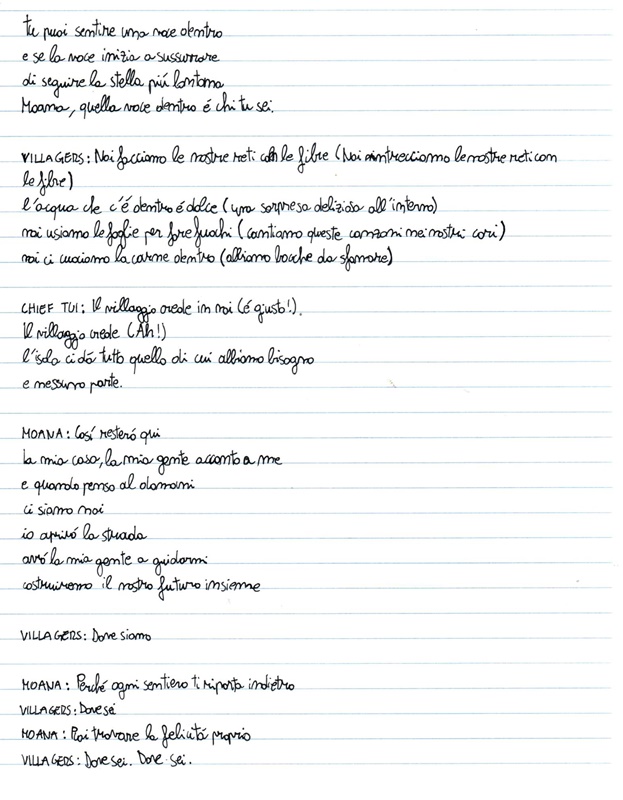 tu puoi sentire una voce dentro
e se la voce inizia a sussurrare
di seguire la stella più lontana
Moana, quella voce dentro é chi tu sei.
VILLAGERS: Noi facciamo le nostre reti con le fibre (Noi intrecciamo le nostre reti con
le fibre)
l'acqua che c'é dentro é dolce (una sorpresa deliziosa all'interno)
noi usiamo le foglie per fare fuochi (cantiamo queste canzoni nei nostri cori)
noi ci cuciamo la carne dentro (abbiamo bocche da sfamare)
CHIEF TUI: Il villaggio crede in noi (é giusto!).
Il villaggio crede (Ah!)
l'isola ci dá tutto quello di cui abbiamo bisogno
e nessuno parte.
MOANA: Cosí resteró qui
la mia casa, la mia gente accanto a me
e quando penso al domani
ci siamo noi
io apriró la strada
avró la mia gente a guidarmi
costruiremo il nostro futuro insieme
VILLAGERS: Dove siamo
MOANA: Perché ogni sentiero ti riporta indietro
VILLAGERS: Dove sei
MOANA: Puoi trovare la felicitá proprio
VILLAGERS: Dove sei. Dove sei.